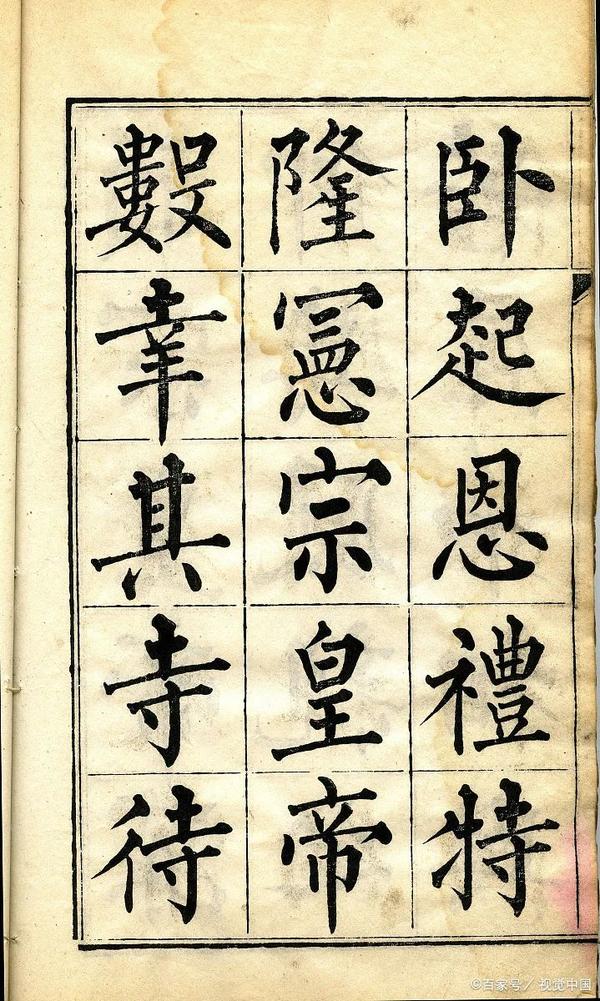 卧起恩禮特
隆憲宗皇帝
數幸其寺待
©百家号／视觉中国